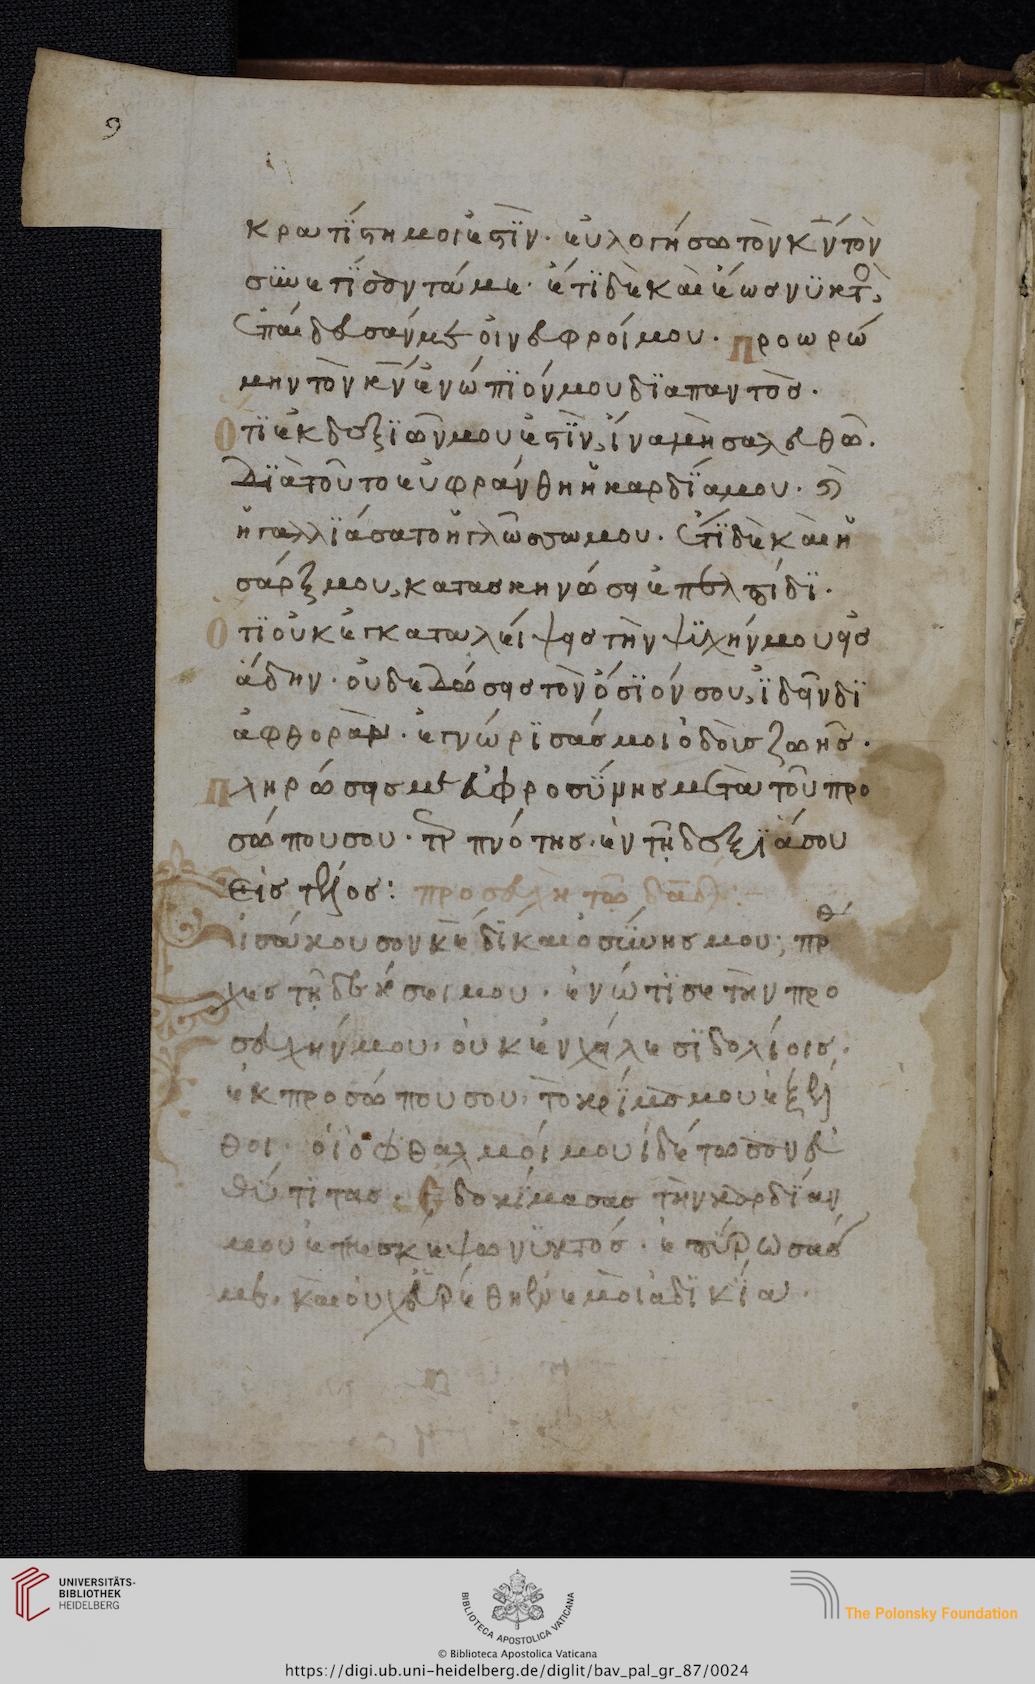 9
κρατίστη μοι ἐστϊν· εὐλογήσω τὸν κν τὸν
σϋνετίσοντά με· ἔτϊ δὲ καὶ ἕωσ νϋκτὸσ,
ἐπαίδευσάν με οἱ νεφροί μου· Προωρώ
μην τὸν κν ἐνώπϊόν μου δϊαπαντὸσ·
Ὅτϊ ἐκ δεξϊῶν μου ἐστϊν, ἵνα μὴ σαλευθῶ·
Δϊὰ τοῦτο εὐφράνθη ἡ καρδΐα μου· καὶ
ἠγαλλϊάσατο ἡ γλῶσσα μου· ἔτϊ δὲ καὶ ἡ
σάρξ μου, κατασκηνώσει ἐπ ελπίδϊ·
Ὅτϊ οὐκ ἐγκαταλείψεισ τὴν ψϋχήν μου εἰσ
ἅδην· οὐδὲ δώσεισ τὸν ὅσϊόν σου, ϊδεῖν δϊ
ἀφθορὰν· ἐγνώρϊσάσ μοι ὁδοὺσ ζωῆσ·
Πληρώσεισ με εὐφροσύνησ μετὰ τοῦ προ
σώπου σου· τερπνότησ ἐν τῇ δεξϊᾷ σου
εἰσ τέλοσ: προσευχὴ τῶ δαδ:
εἰσάκουσον κε δϊκαιοσϋνησ μου, πρό
χεσ τῇ δεήσει μου· ἐνώτϊσε τὴν προ
σευχήν μου, οὐκ ἐν χείλεσϊ δολίοισ·
ἐκ προσώπου σου, τὸ κρΐμα μου ἐξέλ
θοι· οἱ ὀφθαλμόι μου ἰδέτωσον εὐ
θύτϊτασ· Ἐδοκΐμασασ τὴν καρδΐαν
μου ἐπεσκέψω νϋκτόσ· ἐπΰρωσάσ
με, καὶ οὐχ εὑρέθη ἐν ἐμοὶ ἀδϊκΐα·
UNIVERSITÄTS-
BIBLIOTHEK
HEIDELBERG
BIBLIOTECA APOSTOLICA VATICANA
© Biblioteca Apostolica Vaticana
The Polonsky Foundation
https://digi.ub.uni-heidelberg.de/diglit/bav_pal_gr_87/0024